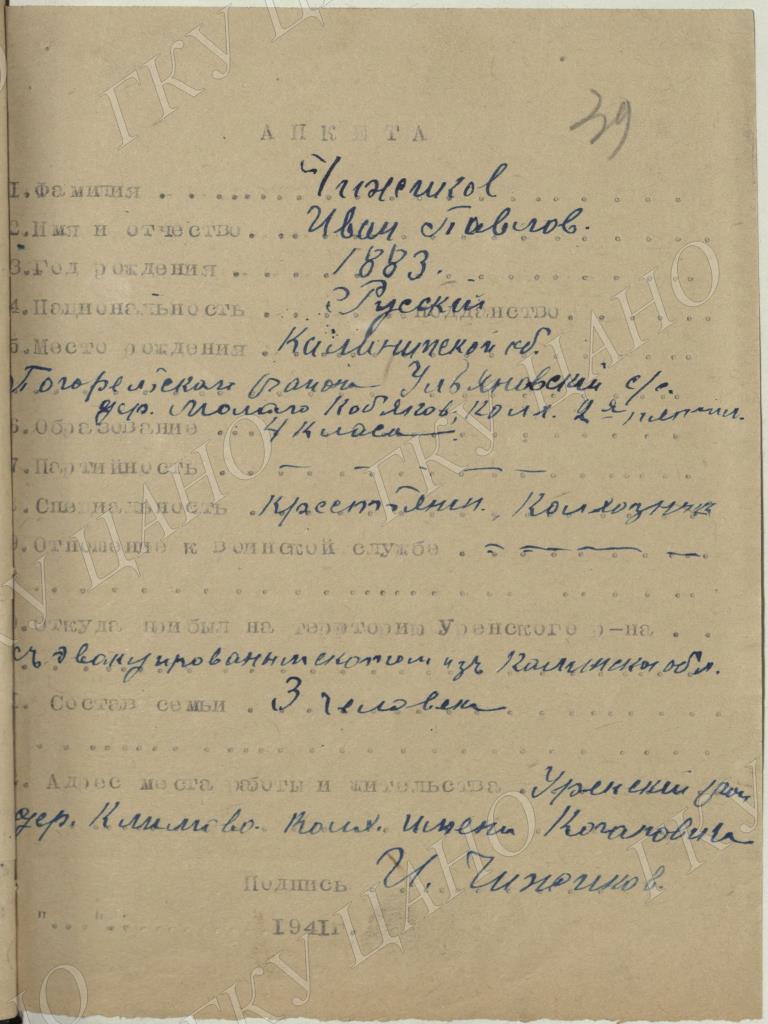 39
АНКЕТА
1.Фамилия . . . . . . . Чижиков
2.Имя и отчество. . . . Иван Павлов.
3.Год рождения . . . . . 1883.
4.Национальность . . . Русский подданство. . . . .
5.Место рождения . Калининской об.
Погорельской района Ульяновский с/с.
дер. Малого Кобяков, Колх. 2я
6.Образование . . . 4 Класса
7.Партийность . . . — — — —
8.Специальность . Крестьянин. Колхозник
9.Отношение к воинской службе . — — — —
Откуда прибыл на территорию Уренского р-на . .
съ эвакуированным скотом изъ Калинской обл.
Состав семьи . 3 человека
Адрес места работы и жительства . Уренский рай
дер. Климово. Колх. имени Кагановича
Подпись И. Чижиков.
"....". 1941г.
ГКУ ЦАНО